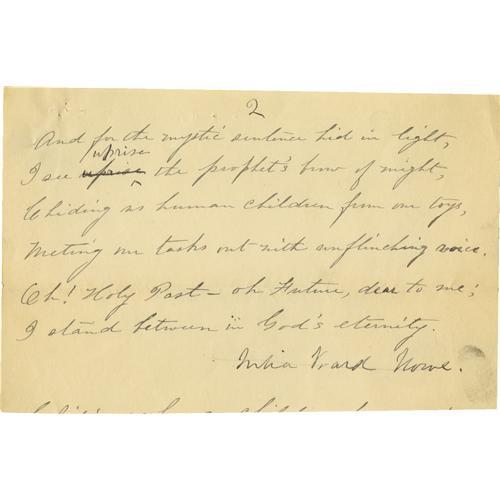 2
And for the mystic sentence hid in light,
uprise
I see uprise the prophet's brow of might,
Chiding us human children from our toys,
Meting our tasks out with unflinching voice.
Oh! Holy Past – oh Future, dear to me;
I stand between in God's eternity.
Julia Ward Howe.